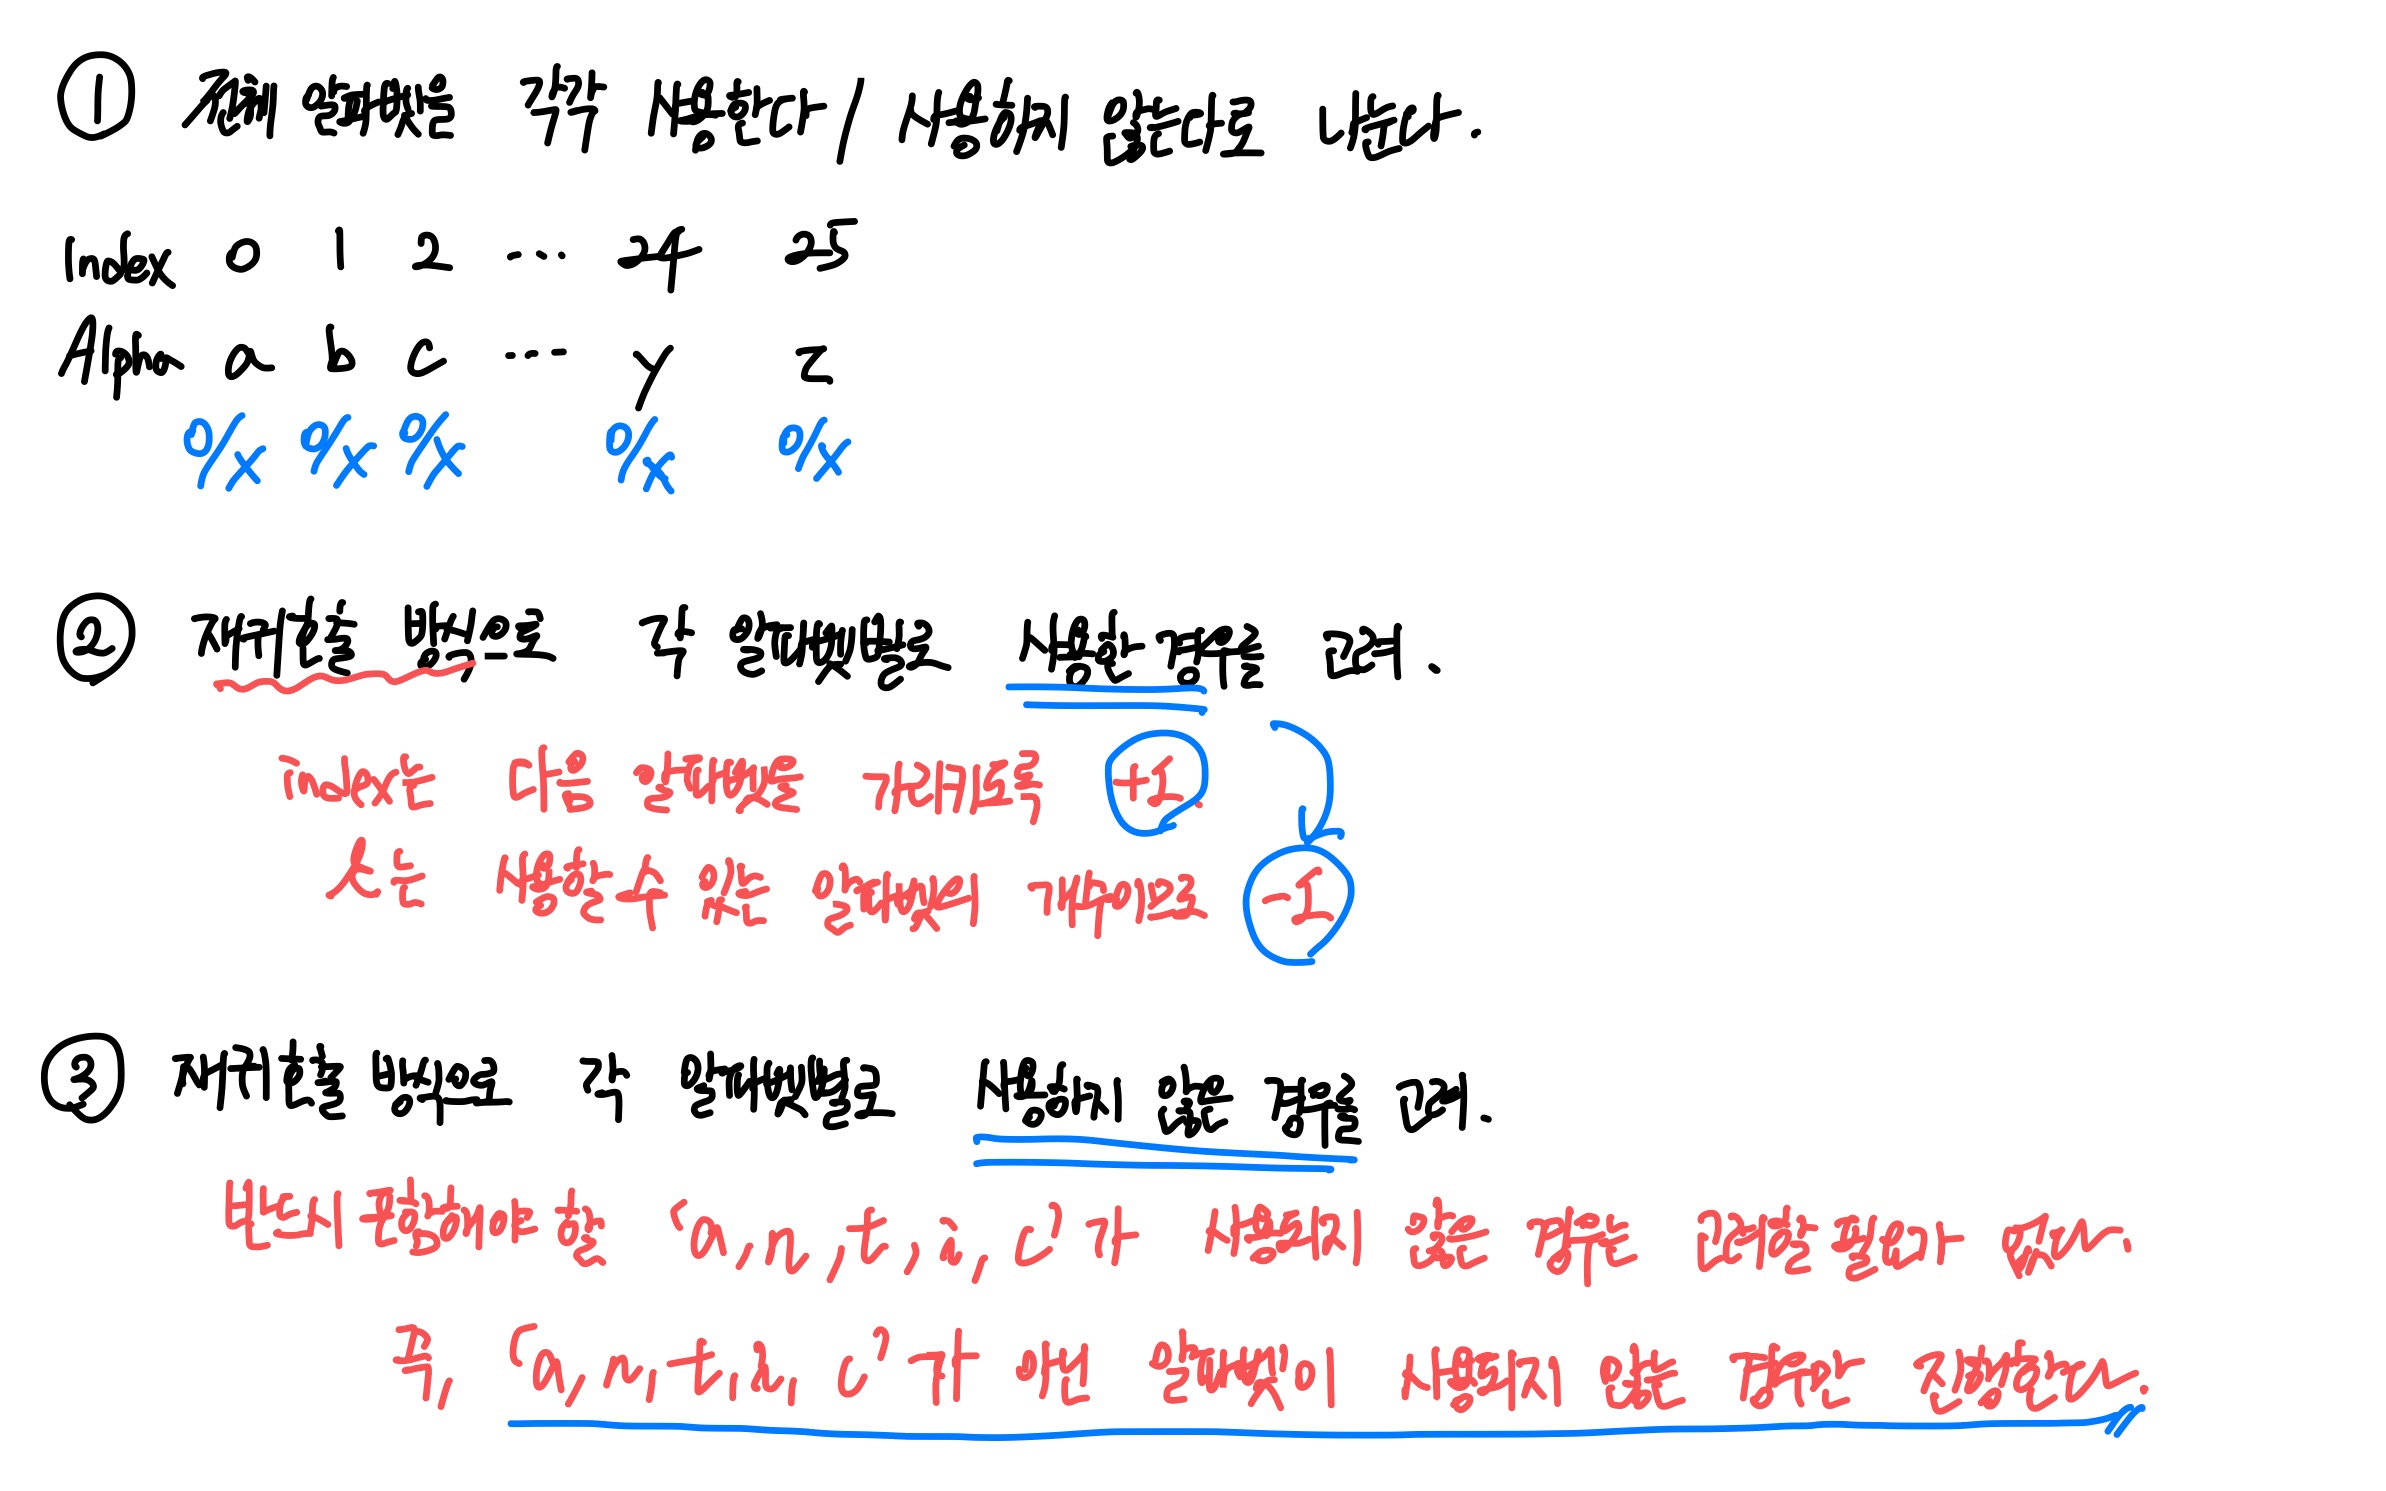 ① 전체 알파벳을 각각 사용한다 / 사용하지 않는다로 나눈다.
Index 0 1 2 ... 24 25
Alpha a b c ... y z
O/X O/X O/X O/X O/X
② 재귀함수를 방식으로 각 알파벳별로 사용한 경우를 고려.
index는 다음 알파벳을 가리키도록 +1.
k는 사용할 수 있는 알파벳의 개수이므로 -1
③ 재귀함수를 방식으로 각 알파벳별로 사용하지 않은 경우를 고려.
반드시 포함되어야 할 'a, n, t, i, c'가 사용되지 않는 경우는
즉, 'a, n, t, i, c'가 아닌 알파벳이 사용되지 않은 경우만 진행한다.